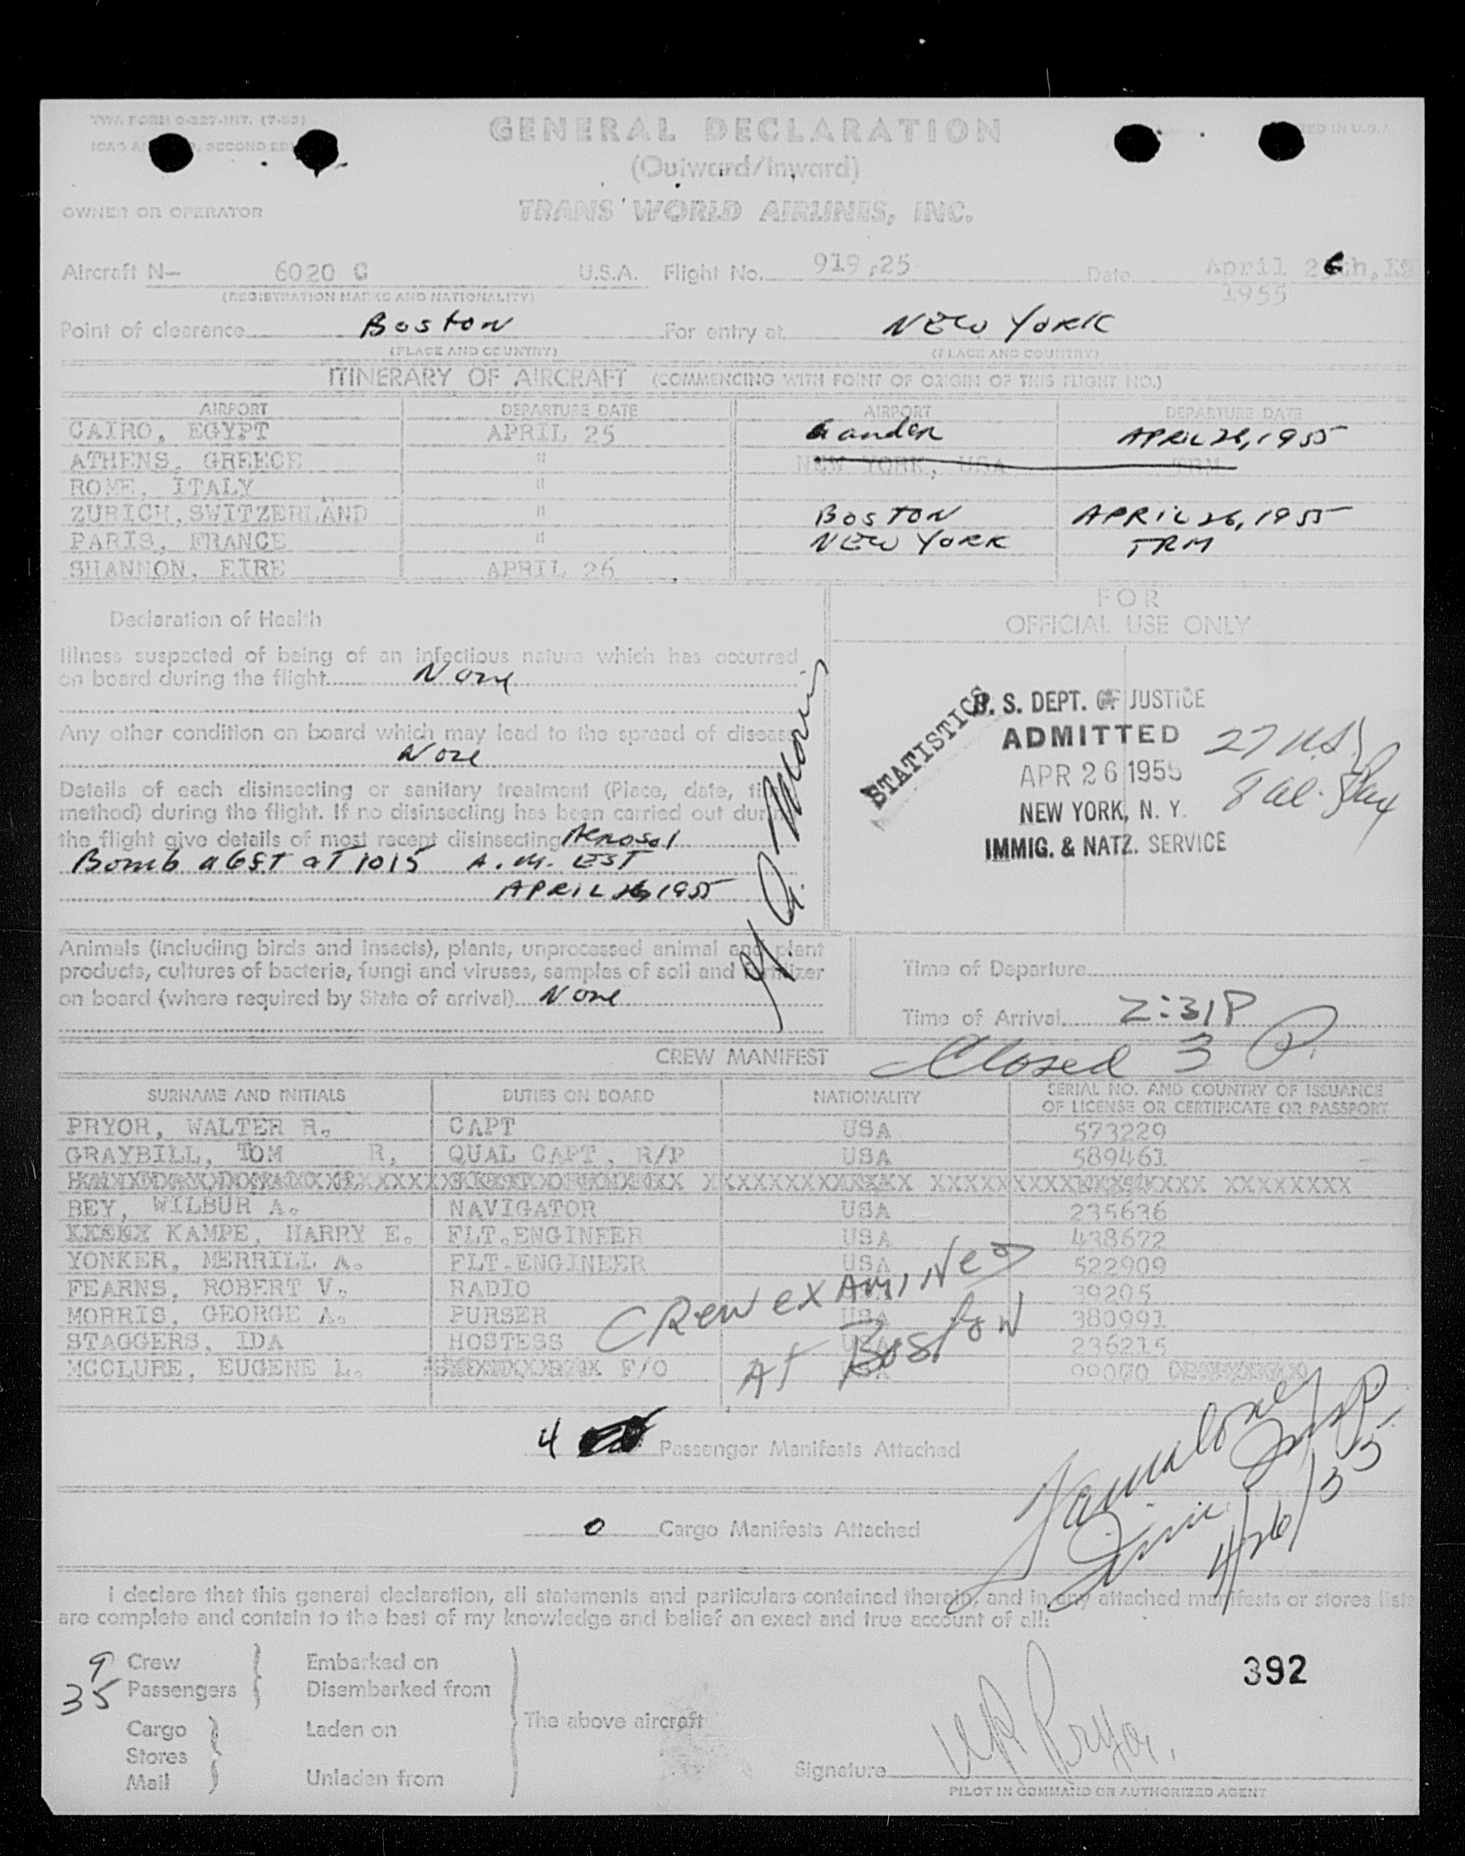 TWA FORM O-227-INT. (7-53)
GENERAL DECLARATION
(Outward/Inward)
OWNER OR OPERATOR TRANS WORLD AIRLINES, INC.
Aircraft N- 6020 C U.S.A. Flight No. 919,25 Date April 26th,
1955
(REGISTRATION MARKS AND NATIONALITY)
Point of clearence Boston For entry at NEW YORK
(PLACE AND COUNTRY) (PLACE AND COUNTRY)
ITINERARY OF AIRCRAFT (COMMENCING WITH POINT OF ORIGIN OF THIS FLIGHT NO.)
AIRPORT DEPARTURE DATE AIRPORT DEPARTURE DATE
CAIRO, EGYPT APRIL 25 Gander APRIL 26, 1955
ATHENS, GREECE " NEW YORK, USA TRM
ROME, ITALY "
ZURICH, SWITZERLAND " BOSTON APRIL 26, 1955
PARIS, FRANCE " NEW YORK TRM
SHANNON, EIRE APRIL 26
Declaration of Health
FOR
OFFICIAL USE ONLY
Illness suspected of being of an infectious nature which has occurred
on board during the flight None
Any other condition on board which may lead to the spread of disease
None
Details of each disinsecting or sanitary treatment (Place, date,
method) during the flight. If no disinsecting has been carried out during
the flight give details of most recent disinsecting Aerosol
Bomb a6ft at 1015 A.M. EST
APRIL 26, 1955
G A Morris
STATISTICS
U. S. DEPT. OF JUSTICE
ADMITTED
APR 26 1955
NEW YORK, N. Y.
IMMIG. & NATZ. SERVICE
27 U.S.
8 al.
Animals (including birds and insects), plants, unprocessed animal and plant
products, cultures of bacteria, fungi and viruses, samples of soil and fertilizer
on board (where required by State of arrival) None
Time of Departure
Time of Arrival 2:31P
Closed 3 P.
CREW MANIFEST
SURNAME AND INITIALS DUTIES ON BOARD NATIONALITY SERIAL NO. AND COUNTRY OF ISSUANCE
OF LICENSE OR CERTIFICATE OR PASSPORT
PRYOR, WALTER R. CAPT USA 573229
GRAYBILL, TOM R. QUAL CAPT, R/P USA 589461
BEY, WILBUR A. NAVIGATOR USA 235636
KAMPE, HARRY E. FLT.ENGINEER USA 438672
YONKER, MERRILL A. FLT.ENGINEER USA 522909
FEARNS, ROBERT V. RADIO 39205
MORRIS, GEORGE A. PURSER USA 380991
STAGGERS, IDA HOSTESS USA 236215
MCCLURE, EUGENE L. F/O 99070
CREW EXAMINED
AT BOSTON
4 Passenger Manifests Attached
0 Cargo Manifests Attached
4/26/55
I declare that this general declaration, all statements and particulars contained therein, and in any attached manifests or stores lists
are complete and contain to the best of my knowledge and belief an exact and true account of all:
9 Crew Embarked on
35 Passengers Disembarked from
Cargo Laden on The above aircraft
Stores
Mail Unladen from
392
Signature WR Pryor.
PILOT IN COMMAND OR AUTHORIZED AGENT